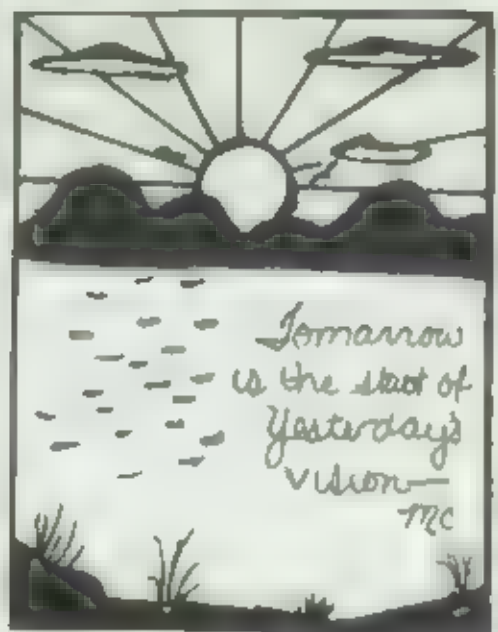 Tomarrow
is the start of
Yesterday's
vision—
MC